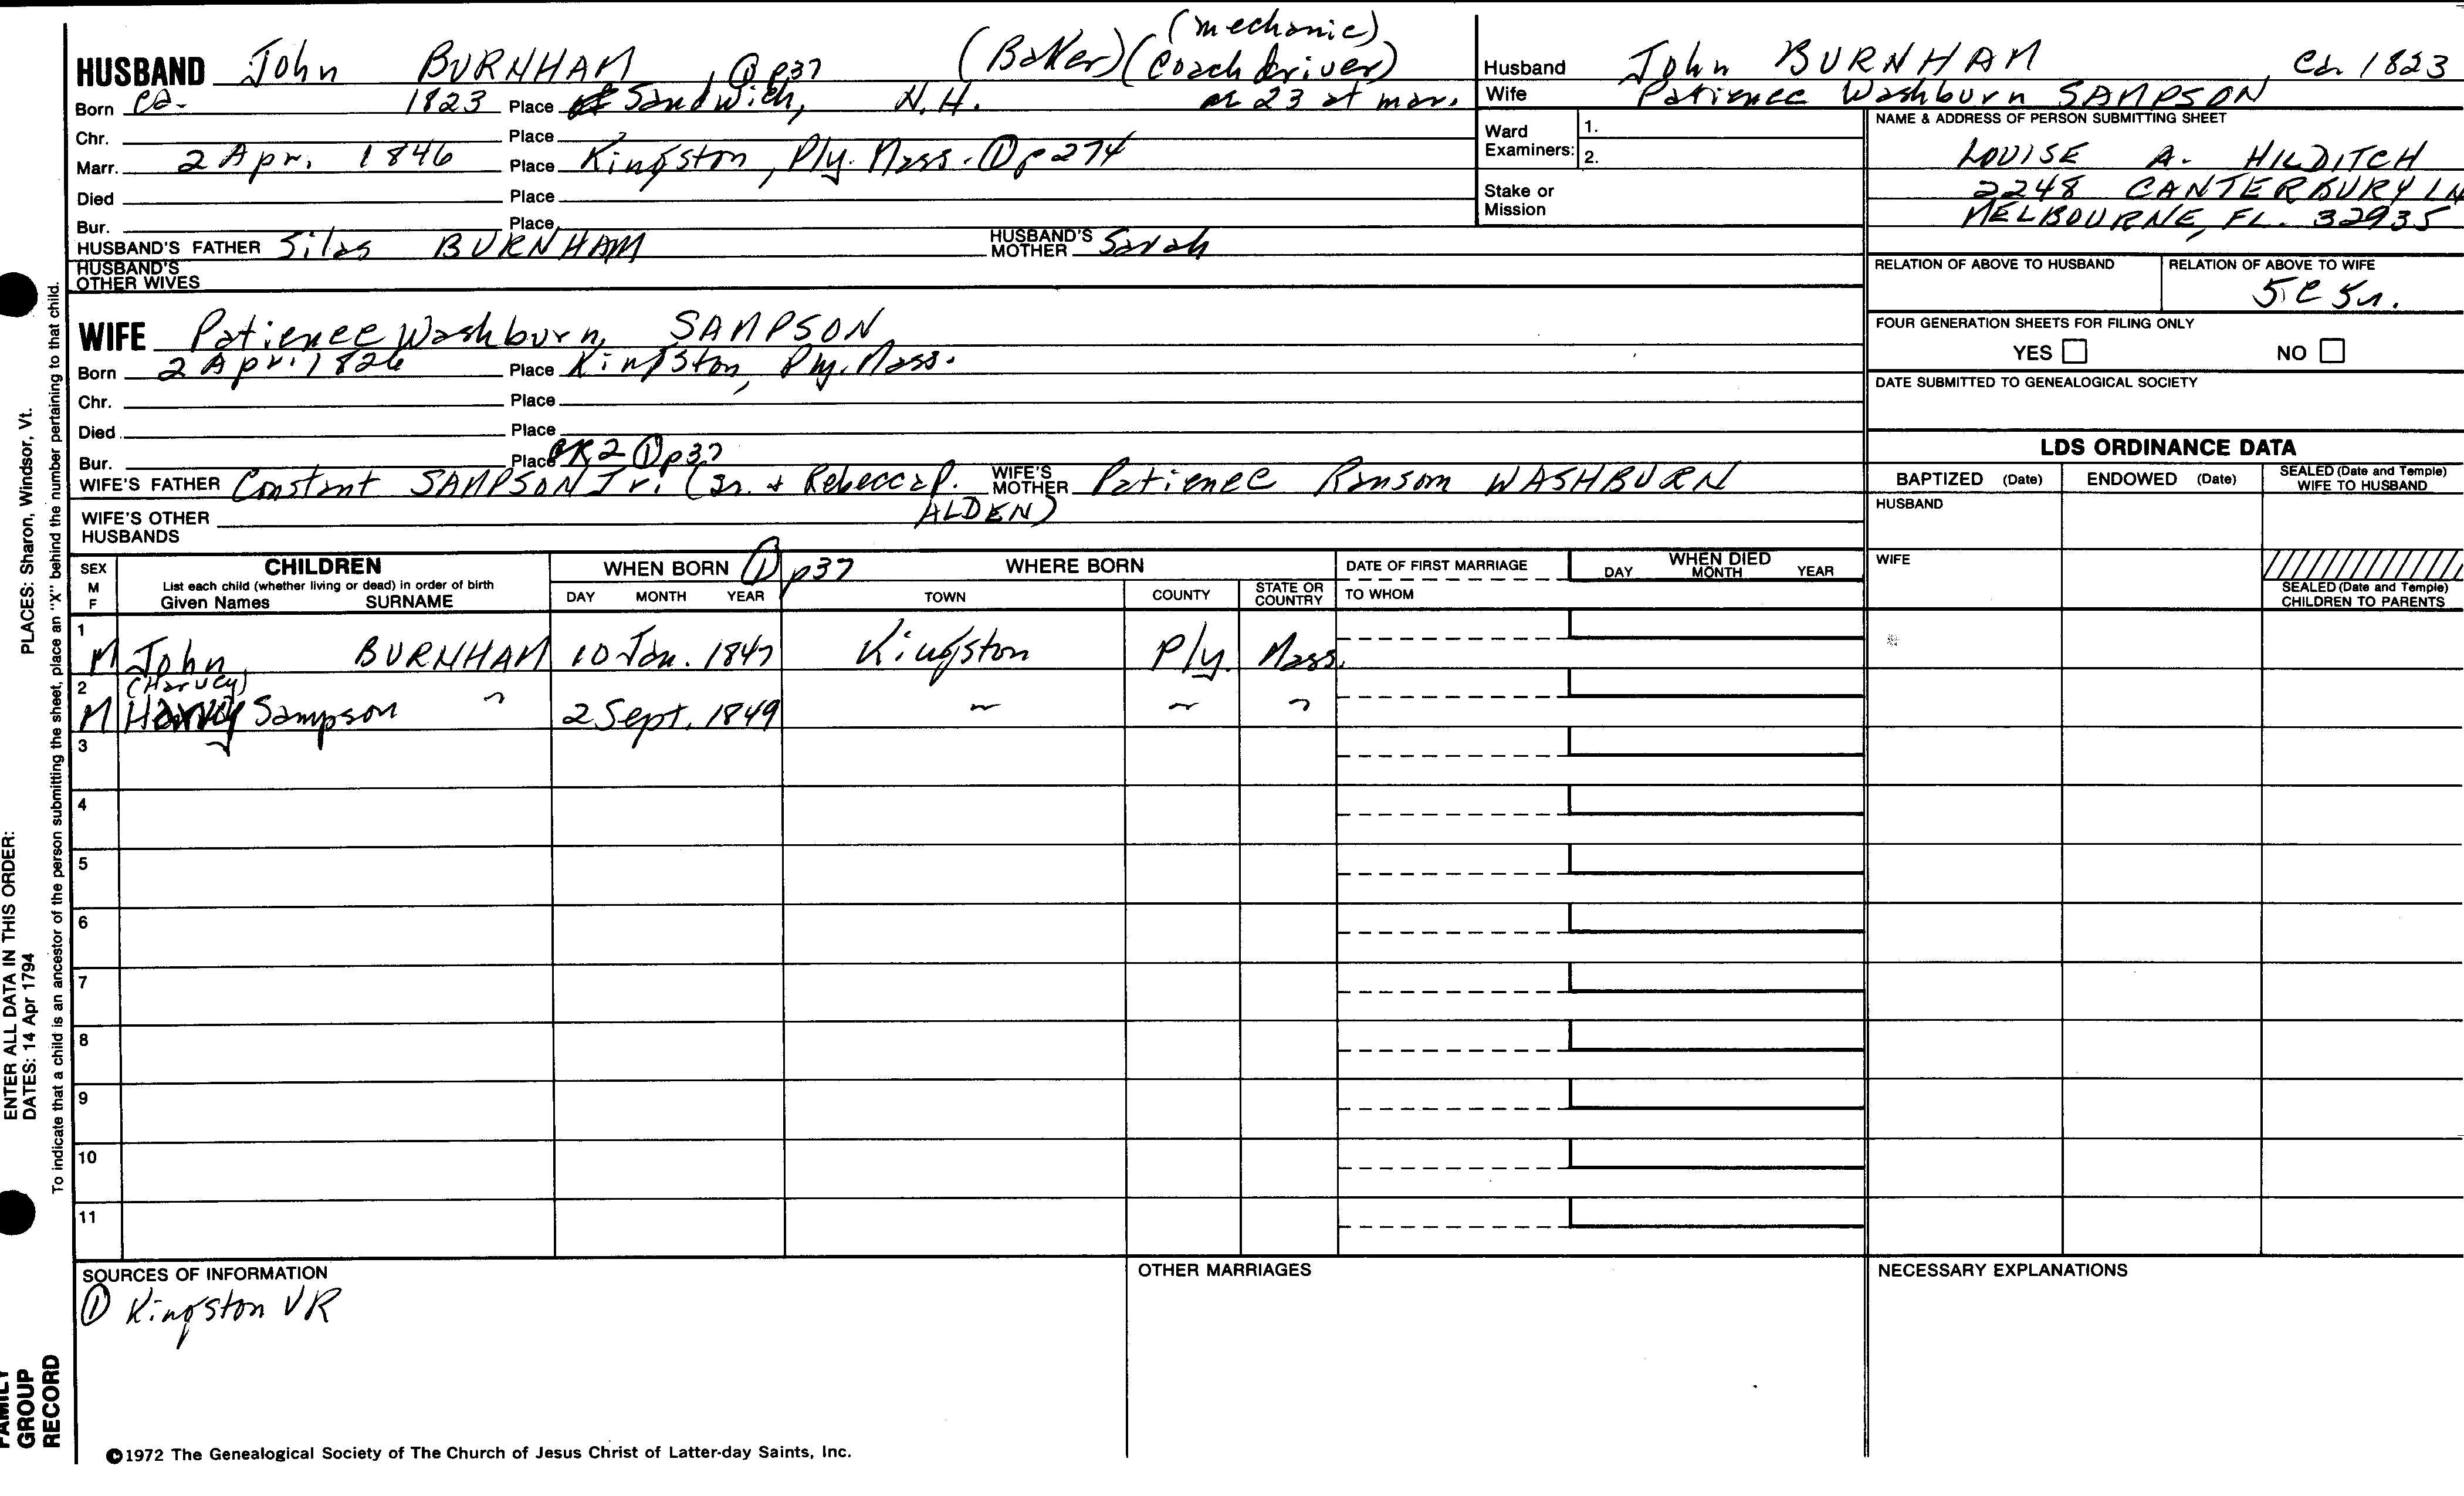 (mechanic)
HUSBAND John BURNHAM, ① p37 (Baker) (coach driver)
Born ca. 1823 Place Sandwich, N.H. ae 23 at mar.
Chr. Place
Marr. 2 Apr. 1846 Place Kingston, Ply. Mass. ① p274
Died Place
Bur. Place
HUSBAND'S FATHER Silas BURNHAM HUSBAND'S MOTHER Sarah
HUSBAND'S OTHER WIVES
WIFE Patience Washburn, SAMPSON
Born 2 Apr. 1826 Place Kingston, Ply. Mass.
Chr. Place
Died Place
Bur. Place GR2 ① p37
WIFE'S FATHER Constant SAMPSON Jr. (Sr. + Rebecca P. ALDEN) WIFE'S MOTHER Patience Ransom WASHBURN
WIFE'S OTHER HUSBANDS
Husband John BURNHAM, ca 1823
Wife Patience Washburn SAMPSON
Ward Examiners: 1.
2.
Stake or Mission
NAME & ADDRESS OF PERSON SUBMITTING SHEET
LOUISE A. HILDITCH
2248 CANTERBURY LN
MELBOURNE, FL. 32935
RELATION OF ABOVE TO HUSBAND RELATION OF ABOVE TO WIFE
5C 5r.
FOUR GENERATION SHEETS FOR FILING ONLY
YES NO
DATE SUBMITTED TO GENEALOGICAL SOCIETY
LDS ORDINANCE DATA
BAPTIZED (Date) ENDOWED (Date) SEALED (Date and Temple) WIFE TO HUSBAND
HUSBAND
WIFE
SEALED (Date and Temple) CHILDREN TO PARENTS
SEX M F CHILDREN WHEN BORN ① p37 WHERE BORN DATE OF FIRST MARRIAGE WHEN DIED
List each child (whether living or dead) in order of birth
Given Names SURNAME DAY MONTH YEAR TOWN COUNTY STATE OR COUNTRY TO WHOM DAY MONTH YEAR
1
M John BURNHAM 10 Jan. 1847 Kingston Ply. Mass.
2 (Harvey)
M Harvey Sampson " 2 Sept. 1849 " " "
3
4
5
6
7
8
9
10
11
SOURCES OF INFORMATION
① Kingston VR
OTHER MARRIAGES
NECESSARY EXPLANATIONS
©1972 The Genealogical Society of The Church of Jesus Christ of Latter-day Saints, Inc.
PLACES: Sharon, Windsor, Vt.
To indicate that a child is an ancestor of the person submitting the sheet, place an "X" behind the number pertaining to that child.
ENTER ALL DATA IN THIS ORDER:
DATES: 14 Apr 1794
FAMILY
GROUP
RECORD